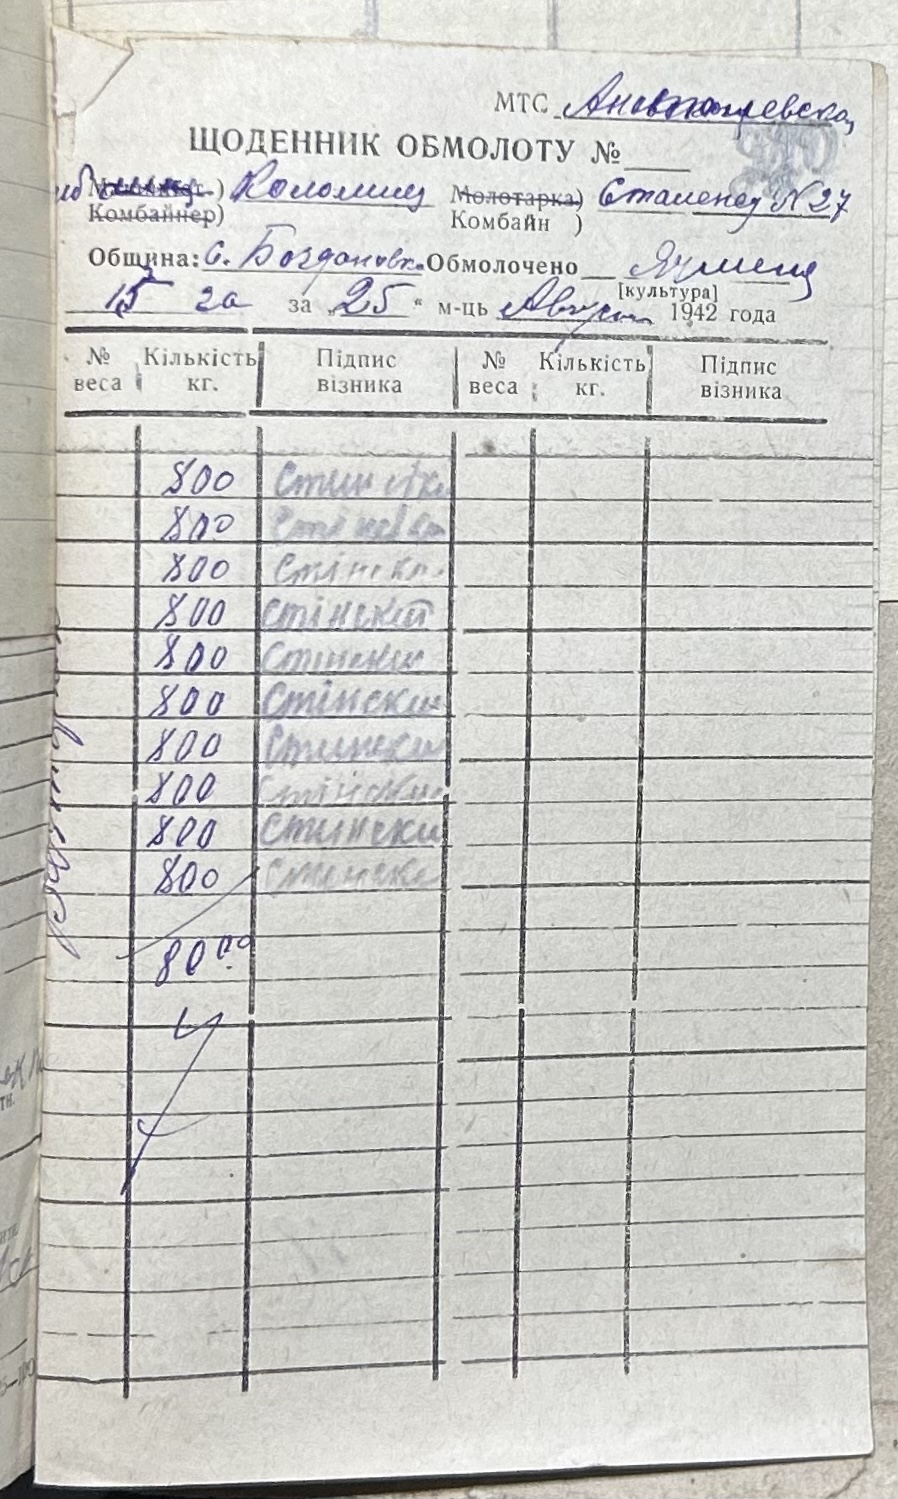 МТС
ЩОДЕННИК ОБМОЛОТУ №
) Коломиец Молотарка) Сталенец N 27
Комбайнер) Комбайн )
Община: с. Богдановк. Обмолочено Ячмень
[культура]
15 га за „25 “ м-ць Август 1942 года
№ веса Кількість кг. Підпис візника № веса Кількість кг. Підпис візника
800
800
800 Стінски
800 Стінский
800 Стінски
800 Стінски
800 Стински
800 Стінски
800 Стински
800
8000